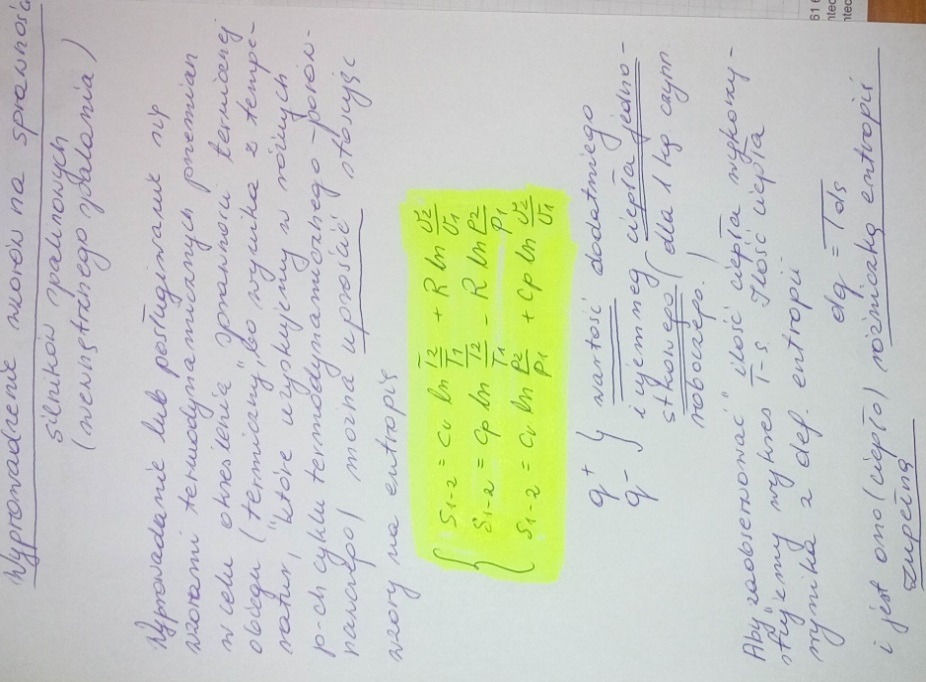 Wyprowadzenie wzorów na sprawność
silników spalinowych
(wewnętrznego spalania)
Wyprowadzanie lub posługiwanie się
wzorami termodynamicznych przemian
w celu określenia sprawności termicznej
obiegu (termicznej, bo wynika z tempe-
ratur, które uzyskujemy w różnych
p-ch cyklu termodynamicznego - porów-
nawczego) można uprościć stosując
wzory na entropię
S1-2 = Cv ln T2/T1 + R ln v2/v1
S1-2 = Cp ln T2/T1 - R ln P2/P1
S1-2 = Cv ln P2/P1 + Cp ln v2/v1
q+ } wartość dodatniego
q- } i ujemneg ciepła jedno-
stkowego (dla 1 kg czynn
roboczego.)
Aby zaobserwować "ilość ciepła" wykorzy-
stujemy wykres T-s. Ilość ciepła
wynika z def. entropii
dq = Tds
i jest ono (ciepło) różniczką entropii
zupełną
61 6
ntec
ntec